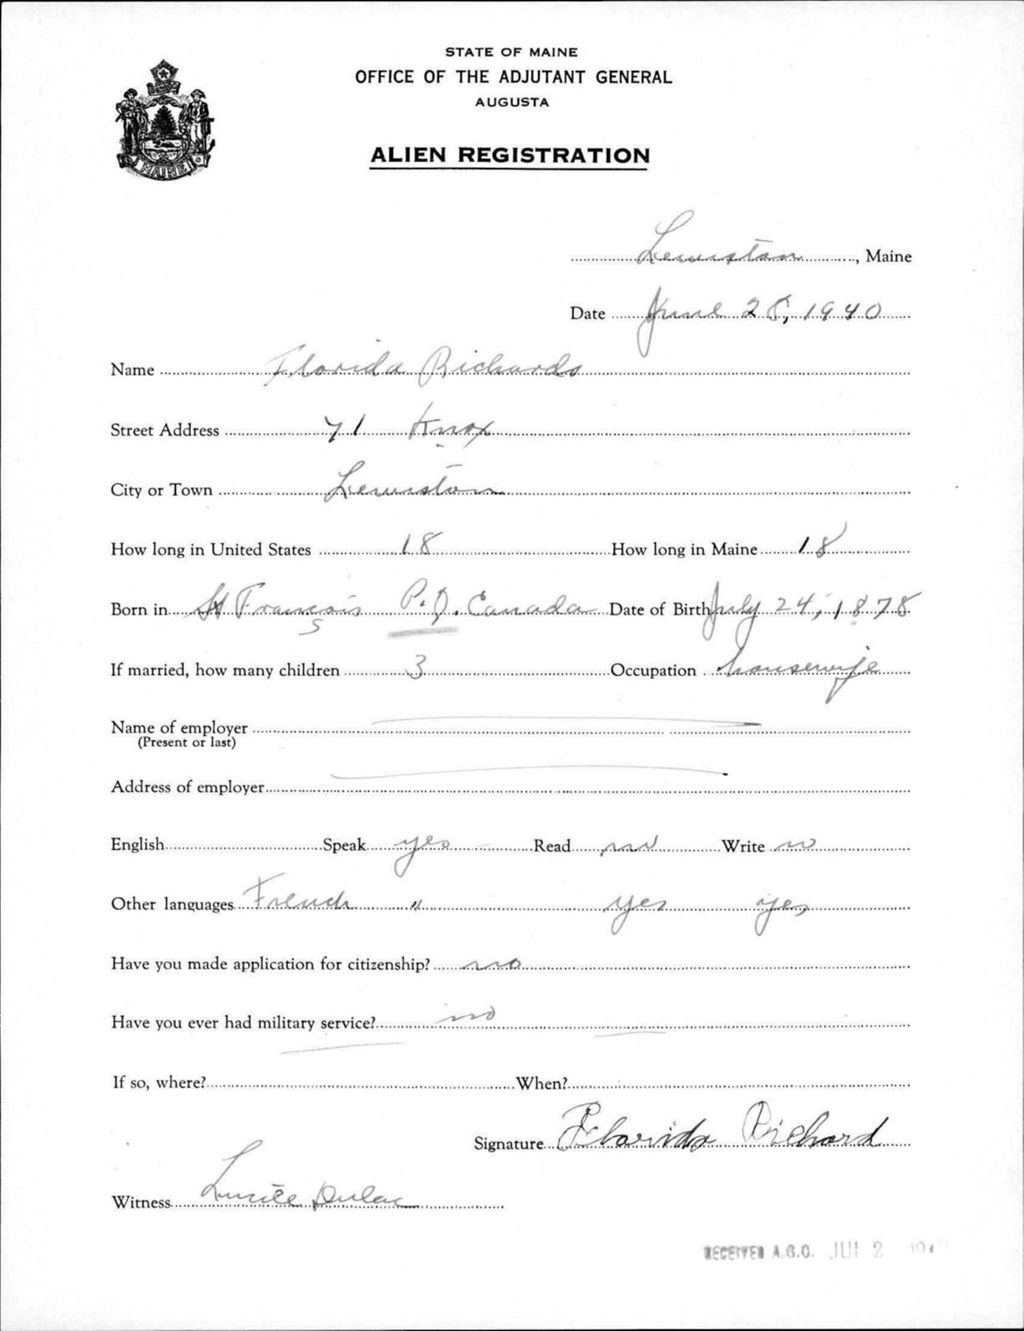 STATE OF MAINE
OFFICE OF THE ADJUTANT GENERAL
AUGUSTA
ALIEN REGISTRATION
MAINE
Lewiston, Maine
Date June 28, 1940
Name Florida Richards
Street Address 71 Knox
City or Town Lewiston
How long in United States 18 How long in Maine 18
Born in St Francois P.Q. Canada Date of Birth July 24, 1878
If married, how many children 3 Occupation housewife
Name of employer
(Present or last)
Address of employer
English Speak yes Read no Write no
Other languages French " yes yes
Have you made application for citizenship? no
Have you ever had military service? no
If so, where? When?
Signature Florida Richard
Witness Lucille Dulac
RECEIVED A.G.O. JUL 2